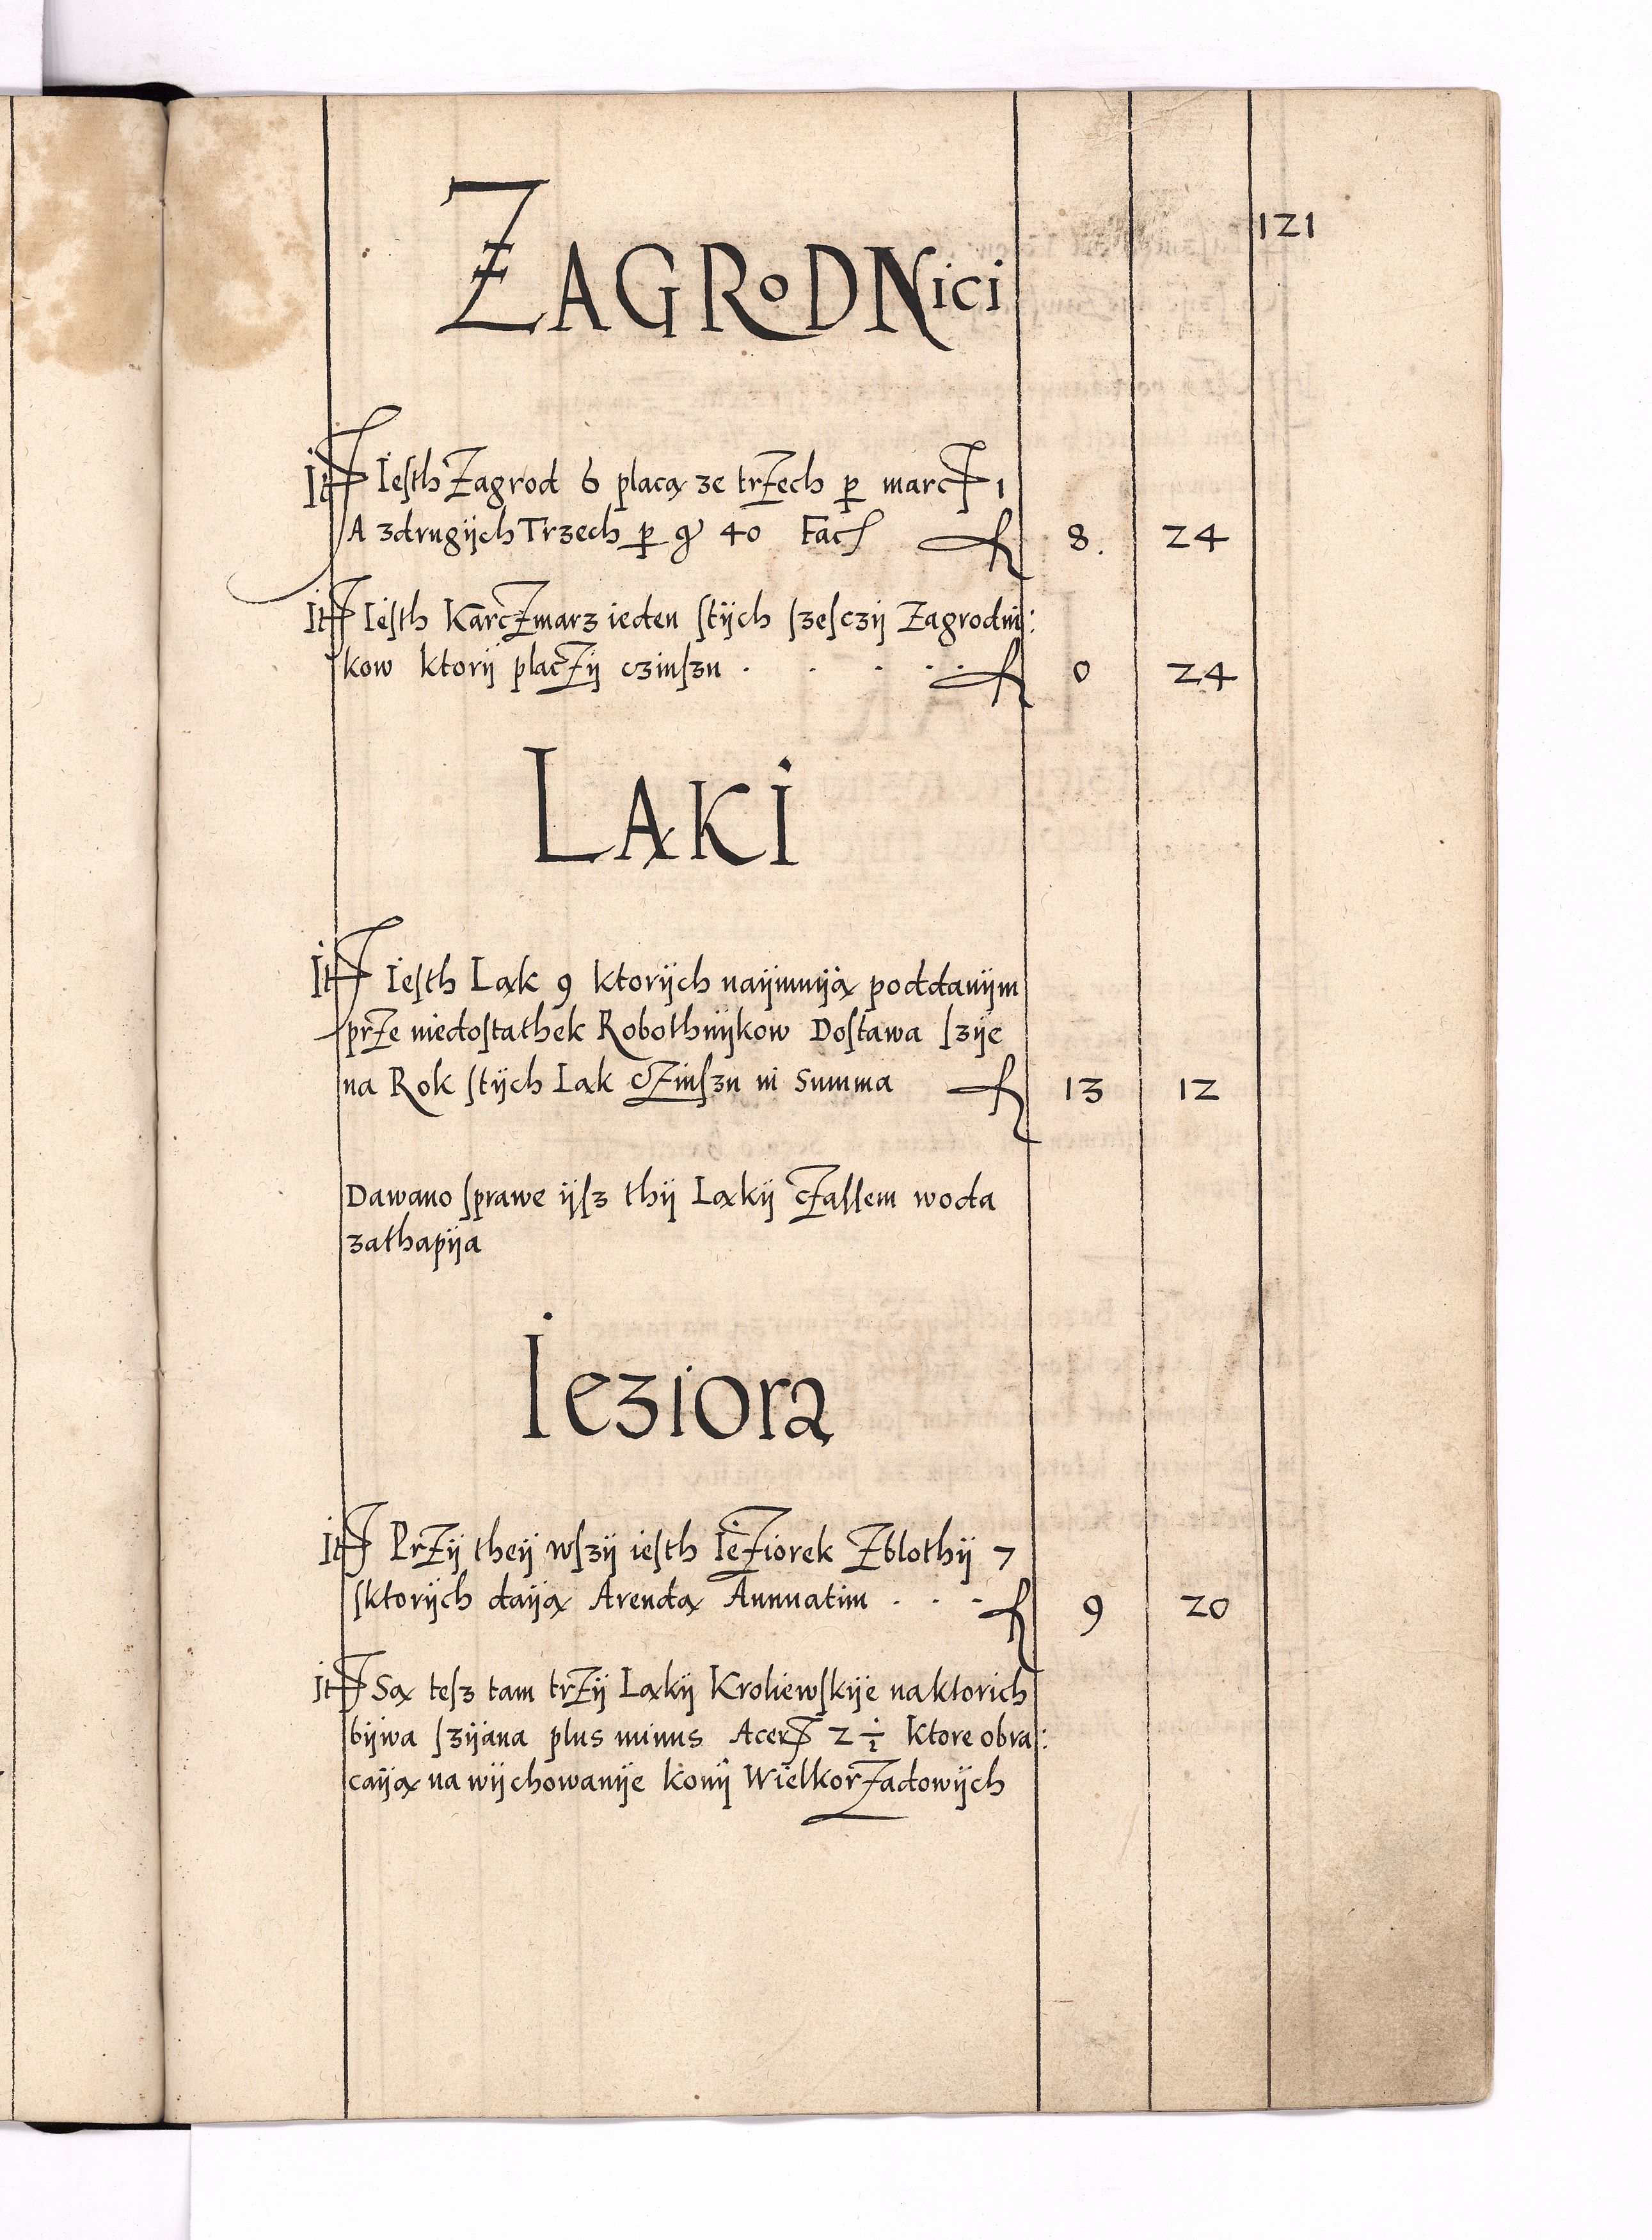 121
ZAGRODNici
It Iesth Zagrod 6 placą ze trzech per marc 1
A zdrugÿch Trzech per gr 40 Fac f 8. 24
It Iesth Karczmarz ieden stÿch szesczÿ Zagrodni:
kow ktorÿ placzÿ czinszu . . . . . f 0 24
LĄKI
It Iesth Ląk 9 ktorÿch naÿmuÿą poddanÿm
prze niedostathek Robothnÿkow Dostawa szÿe
na Rok stÿch Ląk czinszu in Summa f 13 12
Dawano sprawe ÿsz thÿ Ląkÿ czassem woda
zathapÿa
Ieziora
It Przÿ theÿ wszÿ iesth Ieziorek Zblothÿ 7
sktorÿch daÿą Arendą Annuatim . . . f 9 20
It Są tesz tam trzÿ Ląkÿ Kroliewskÿe naktorich
bÿwa szÿana plus minus Acer 2 1/2 ktore obra:
caÿą na wÿchowanÿe konÿ Wielkorzadowÿch